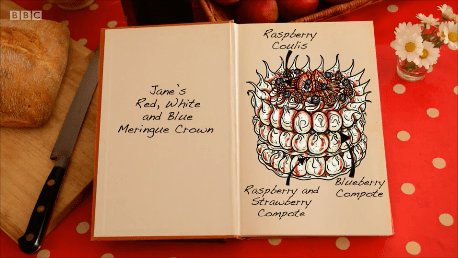 BBC
Jane's
Red, White
and Blue
Meringue Crown
Raspberry
Coulis
Raspberry and
Strawberry
Compote
Blueberry
Compote